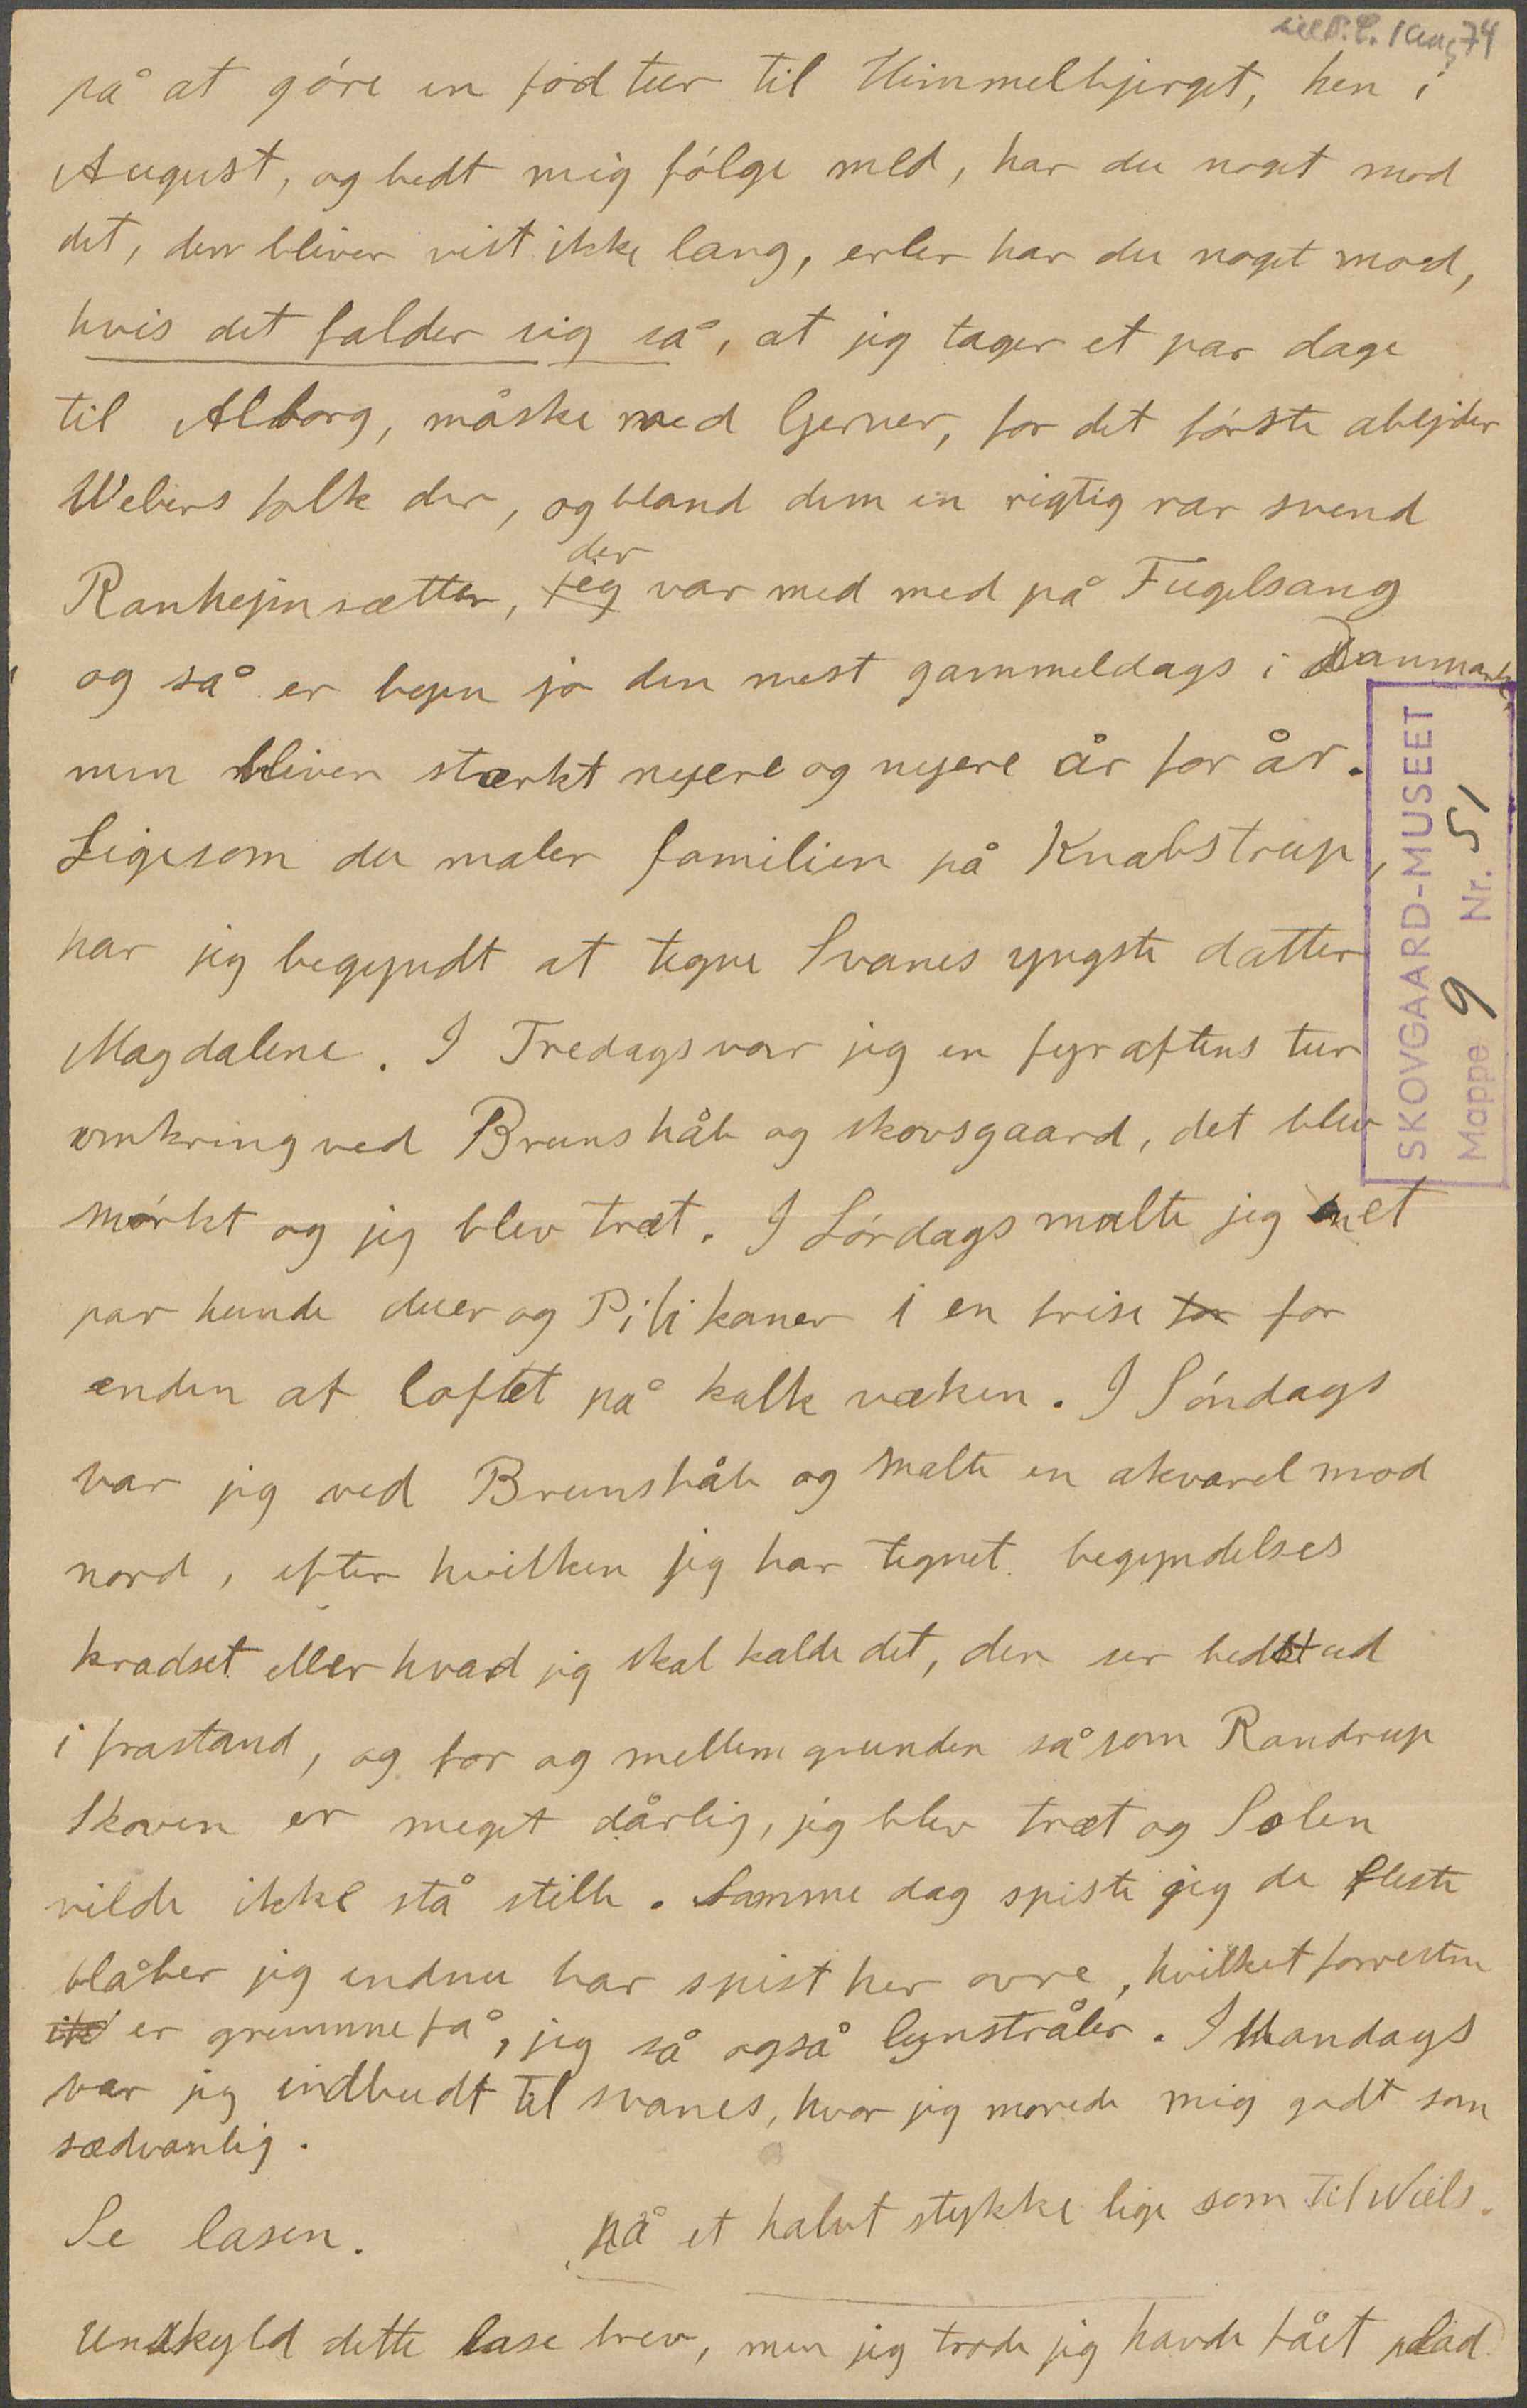 till P. C. 1 Aug 74
på at góre en fod tur til Himmelbjerget, hen i
August, og bedt mig fólge med, har du noget mod
det, den bliver vist ikke lang, erler har du noget mod,
hvis det falder sig så, at jeg tager et par dage
til Alborg, måske med Gerner, for det fórste abejder
Webers folk der, og bland dem en rigtig rar svend
der
Ranhejmsætter, jeg var med med på Fugelsang
og så er byen jo den mest gammeldags i Danmark,
men bliver stærkt nyere og nyere år for år.
Ligesom du maler familien på Knabstrup,
har jeg begyndt at tegne Svanes yngste datter
Magdalene. I Fredags var jeg en fyraftens tur
omkring ved Brunshåb og skovsgaard, det blev
mórkt og jeg blev træt. I Lórdags malte jeg et
par hunde duer og Pilikaner i en frise for for
enden af loftet på kalk væken. I Sóndags
var jeg ved Brunshåb og malte en akvarel mod
nord, efter hvilken jeg har tegnet begyndelses
kradset eller hvad jeg skal kalde det, den ser bedst ud
i frastand, og for og mellem grunden så som Randrup
Skoven er meget dårlig, jeg blev træt og Solen
vilde ikke stå stille. Samme dag spiste jeg de fleste
blåber jeg endnu har spist her ovre, hvilket forresten
er grumme få, jeg så også lynstråler. I Mandags
var jeg indbudt til svanes, hvor jeg morede mig godt som
sædvanlig.
Se lasen. på et halvt stykke lige som til Niels.
Undskyld dette lase brev, men jeg trode jeg havde fået plad
SKOVGAARD-MUSEET
Mappe 9 Nr. 51